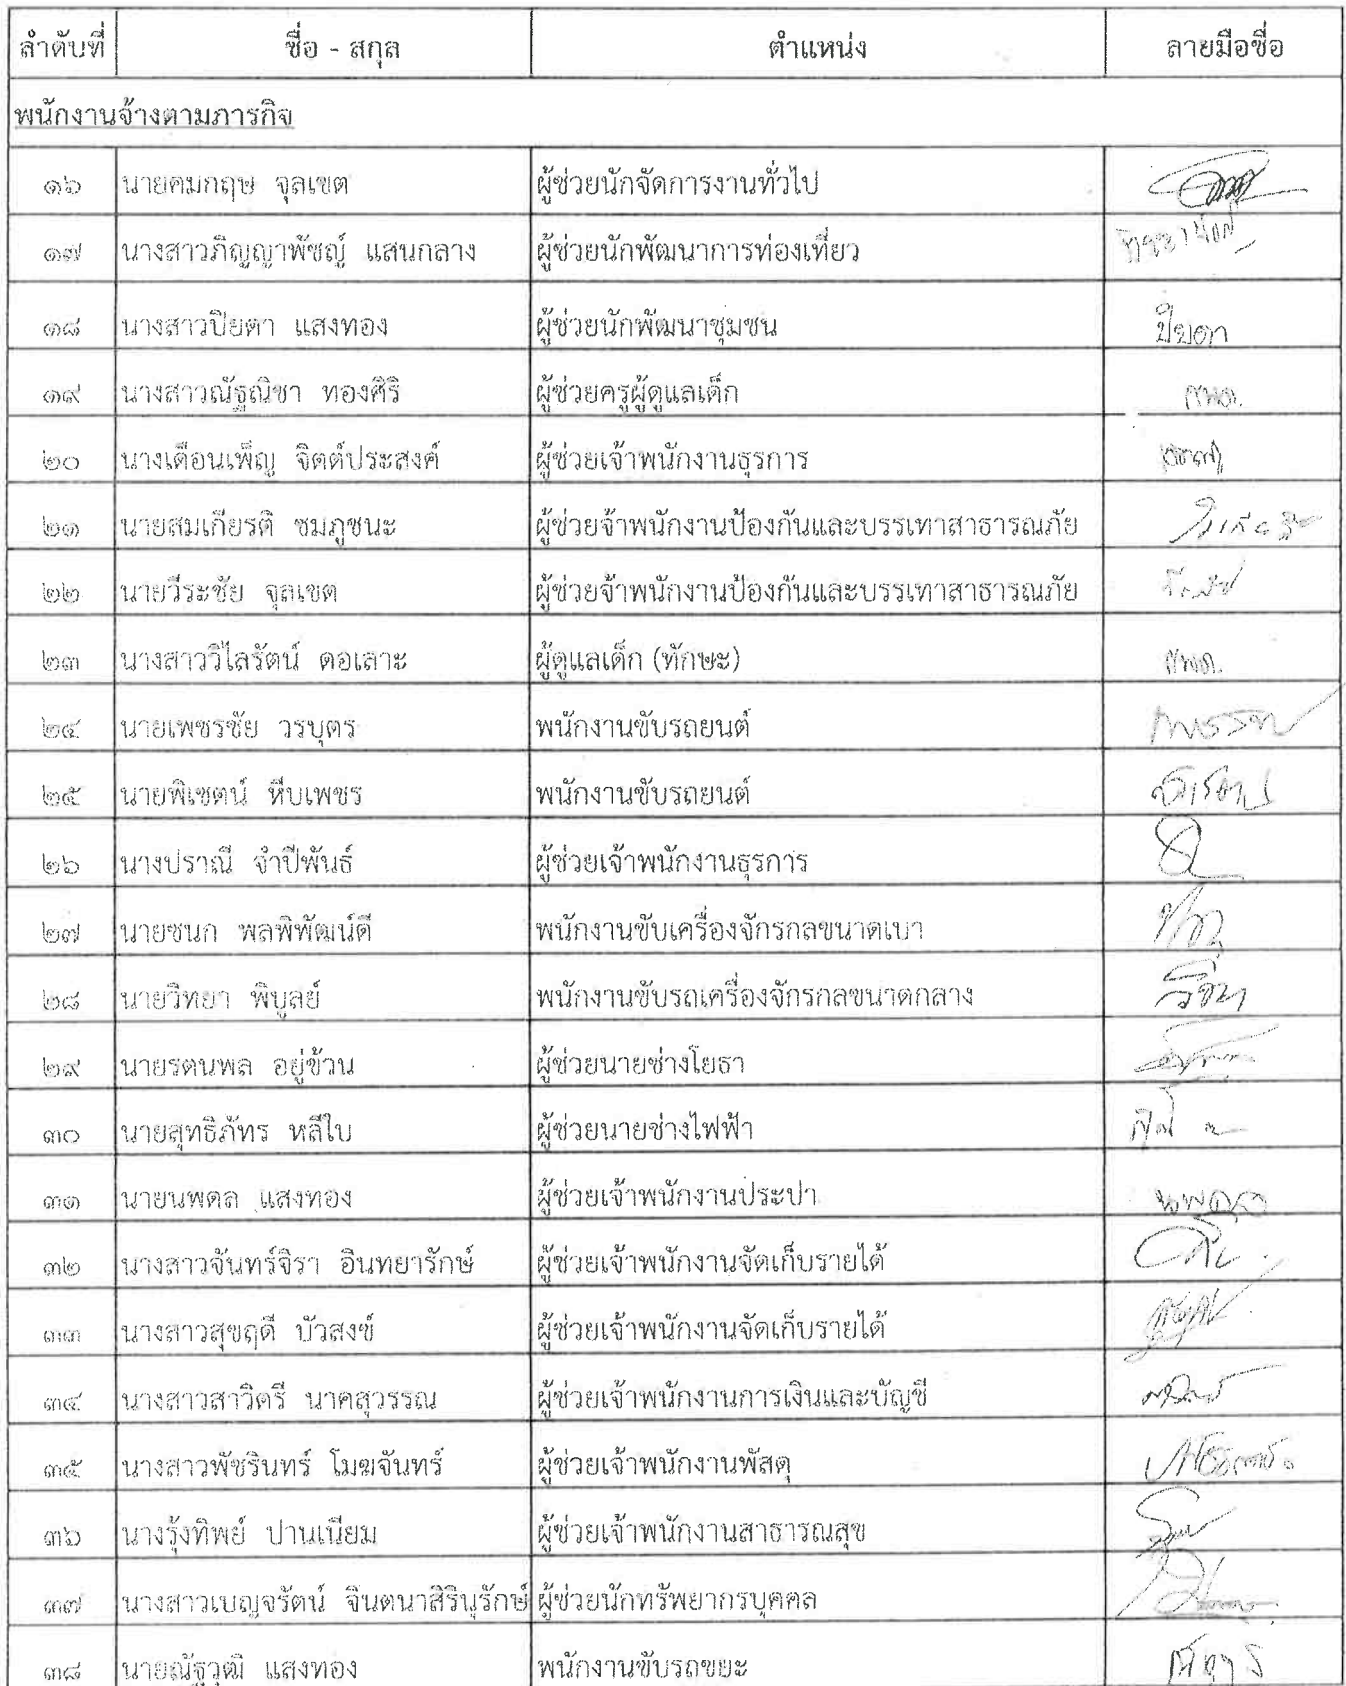 ลำดับที่ ชื่อ - สกุล ตำแหน่ง ลายมือชื่อ
พนักงานจ้างตามภารกิจ
๑๖ นายคมกฤษ จุลเขต ผู้ช่วยนักจัดการงานทั่วไป
๑๗ นางสาวภิญญาพัชญ์ แสนกลาง ผู้ช่วยนักพัฒนาการท่องเที่ยว
๑๘ นางสาวปิยดา แสงทอง ผู้ช่วยนักพัฒนาชุมชน ปิยดา
๑๙ นางสาวณัฐณิชา ทองศิริ ผู้ช่วยครูผู้ดูแลเด็ก
๒๐ นางเดือนเพ็ญ จิตต์ประสงค์ ผู้ช่วยเจ้าพนักงานธุรการ
๒๑ นายสมเกียรติ ชมภูชนะ ผู้ช่วยจ้าพนักงานป้องกันและบรรเทาสาธารณภัย
๒๒ นายวีระชัย จุลเขต ผู้ช่วยจ้าพนักงานป้องกันและบรรเทาสาธารณภัย
๒๓ นางสาววิไลรัตน์ ดอเลาะ ผู้ดูแลเด็ก (ทักษะ)
๒๔ นายเพชรชัย วรบุตร พนักงานขับรถยนต์
๒๕ นายพิเชตน์ หีบเพชร พนักงานขับรถยนต์
๒๖ นางปราณี จำปีพันธ์ ผู้ช่วยเจ้าพนักงานธุรการ
๒๗ นายชนก พลพิพัฒน์ดี พนักงานขับเครื่องจักรกลขนาดเบา
๒๘ นายวิทยา พิบูลย์ พนักงานขับรถเครื่องจักรกลขนาดกลาง
๒๙ นายรตนพล อยู่ข้วน ผู้ช่วยนายช่างโยธา
๓๐ นายสุทธิภัทร หลีใบ ผู้ช่วยนายช่างไฟฟ้า
๓๑ นายนพดล แสงทอง ผู้ช่วยเจ้าพนักงานประปา นพดล
๓๒ นางสาวจันทร์จิรา อินทยารักษ์ ผู้ช่วยเจ้าพนักงานจัดเก็บรายได้
๓๓ นางสาวสุขฤดี บัวสงข์ ผู้ช่วยเจ้าพนักงานจัดเก็บรายได้
๓๔ นางสาวสาวิตรี นาคสุวรรณ ผู้ช่วยเจ้าพนักงานการเงินและบัญชี
๓๕ นางสาวพัชรินทร์ โมฆจันทร์ ผู้ช่วยเจ้าพนักงานพัสดุ
๓๖ นางรุ้งทิพย์ ปานเนียม ผู้ช่วยเจ้าพนักงานสาธารณสุข
๓๗ นางสาวเบญจรัตน์ จินตนาสิรินุรักษ์ ผู้ช่วยนักทรัพยากรบุคคล
๓๘ นายณัฐวุฒิ แสงทอง พนักงานขับรถขยะ